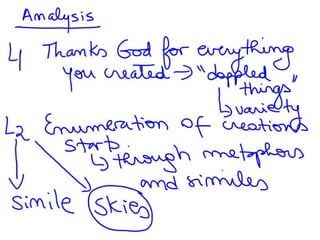 Analysis
L1 Thanks God for everything
you created → "dappled
things"
↳ variety
L2 Enumeration of creations
starts
↳ through metaphors
and similes
Simile Skies